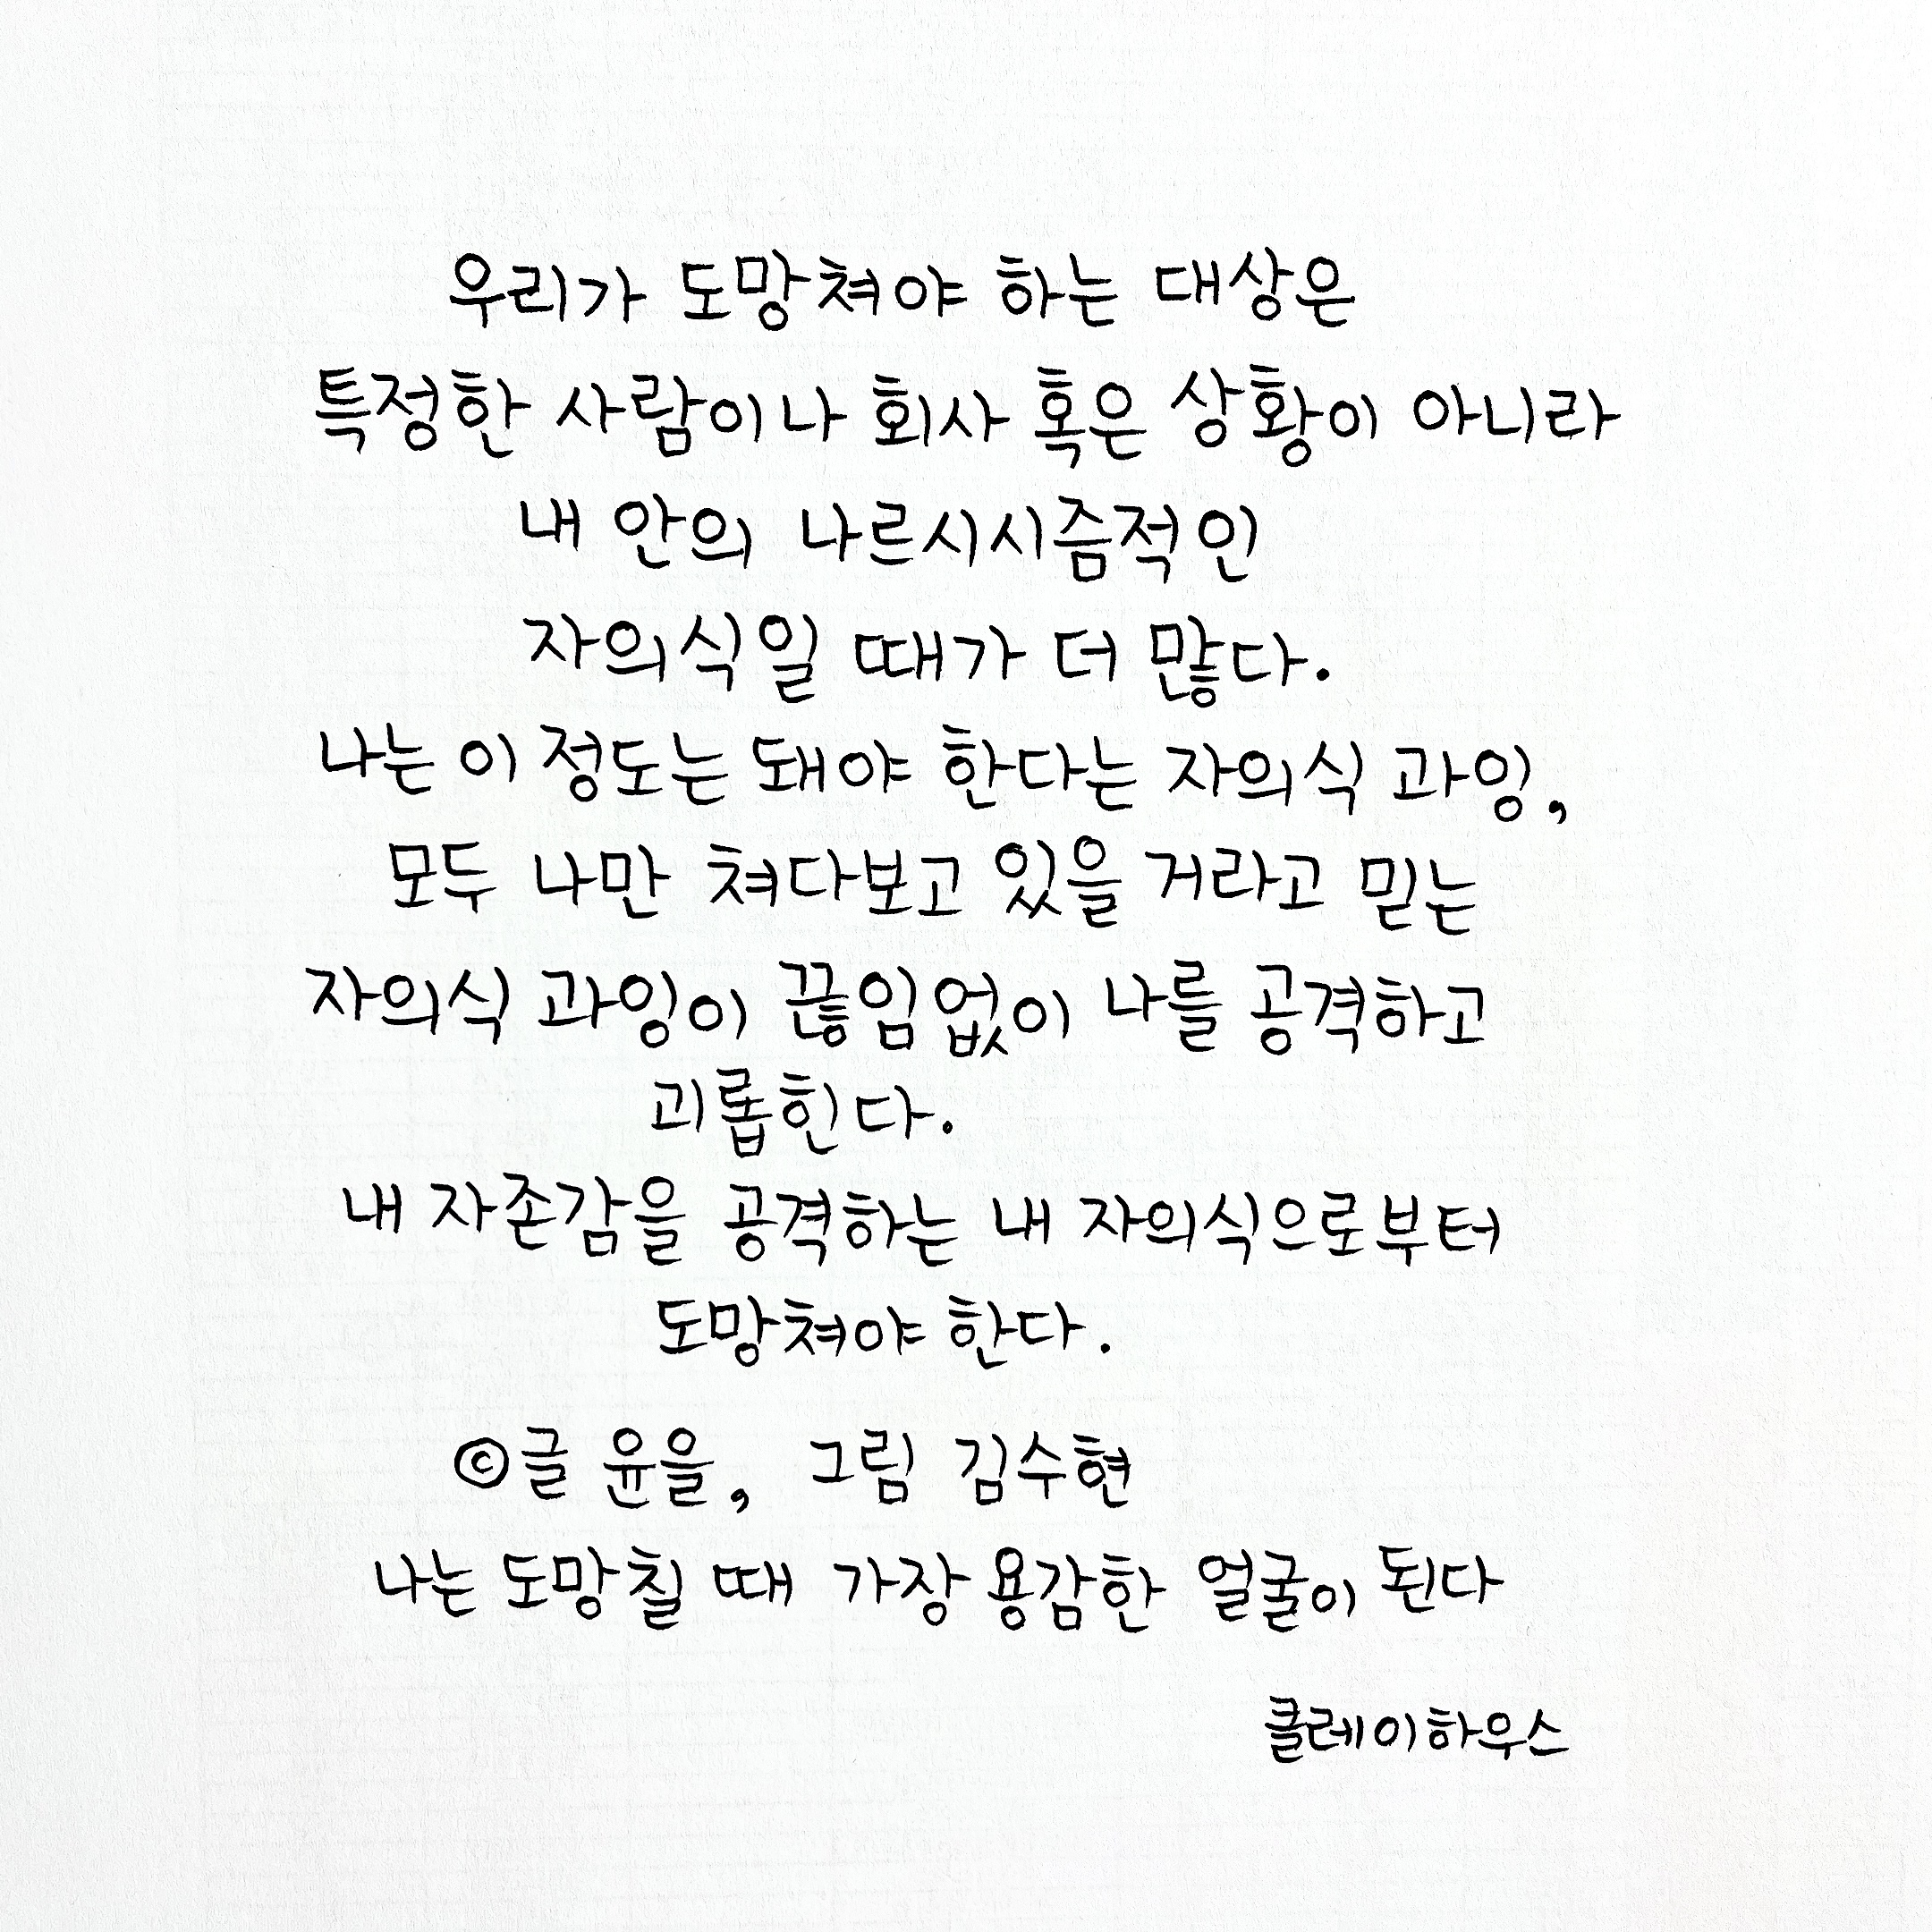 우리가 도망쳐야 하는 대상은
특정한 사람이나 회사 혹은 상황이 아니라
내 안의 나르시시즘적인
자의식일 때가 더 많다.
나는 이 정도는 돼야 한다는 자의식 과잉,
모두 나만 쳐다보고 있을 거라고 믿는
자의식 과잉이 끊임없이 나를 공격하고
괴롭힌다.
내 자존감을 공격하는 내 자의식으로부터
도망쳐야 한다.
©글 윤을, 그림 김수현
나는 도망칠 때 가장 용감한 얼굴이 된다
클레이하우스